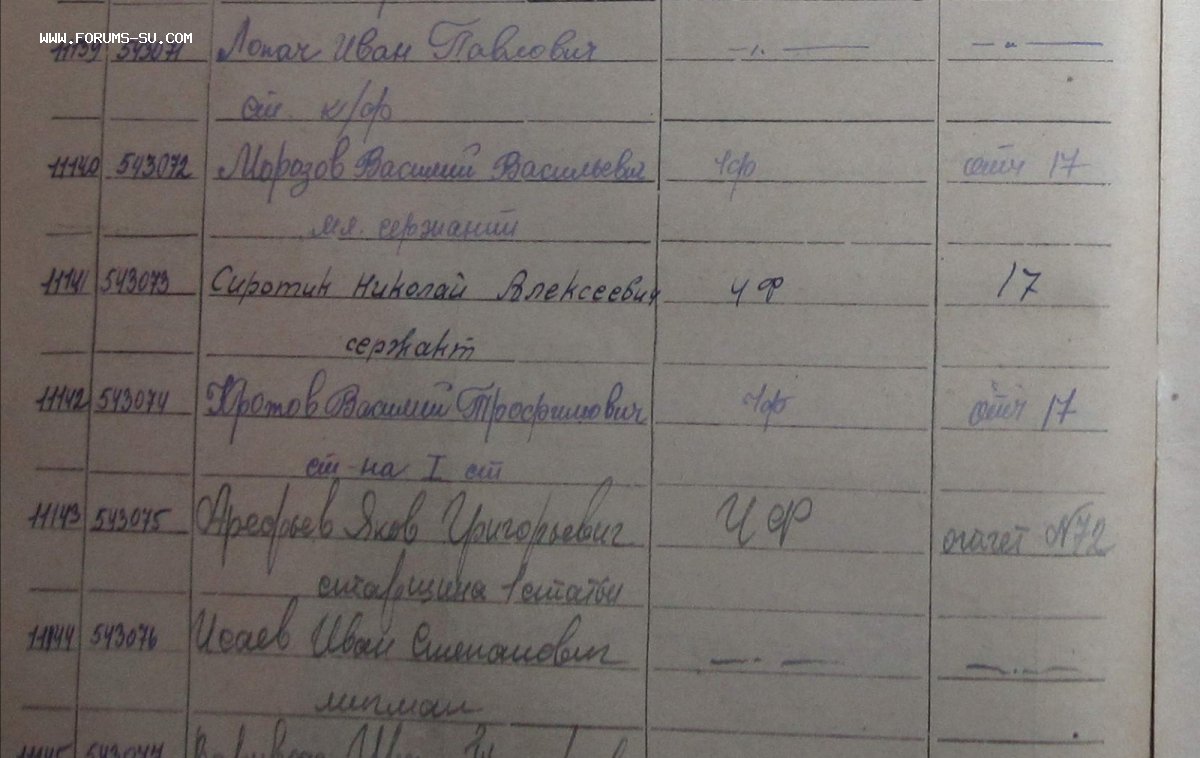 www.FORUMS-SU.com
11139 543071 Лопач Иван Павлович —"— —"—
ст. к/ф
11140 543072 Морозов Василий Васильевич Чф отч 17
мл. сержант
11141 543073 Сиротин Николай Алексеевич ЧФ 17
сержант
11142 543074 Кротов Василий Трофимович Чф отч 17
ст-на I ст
11143 543075 Арефьев Яков Григорьевич ЧФ отчет №72
старшина 1 статьи
11144 543076 Исаев Иван Степанович —"— —"—
мичман
11145 543077